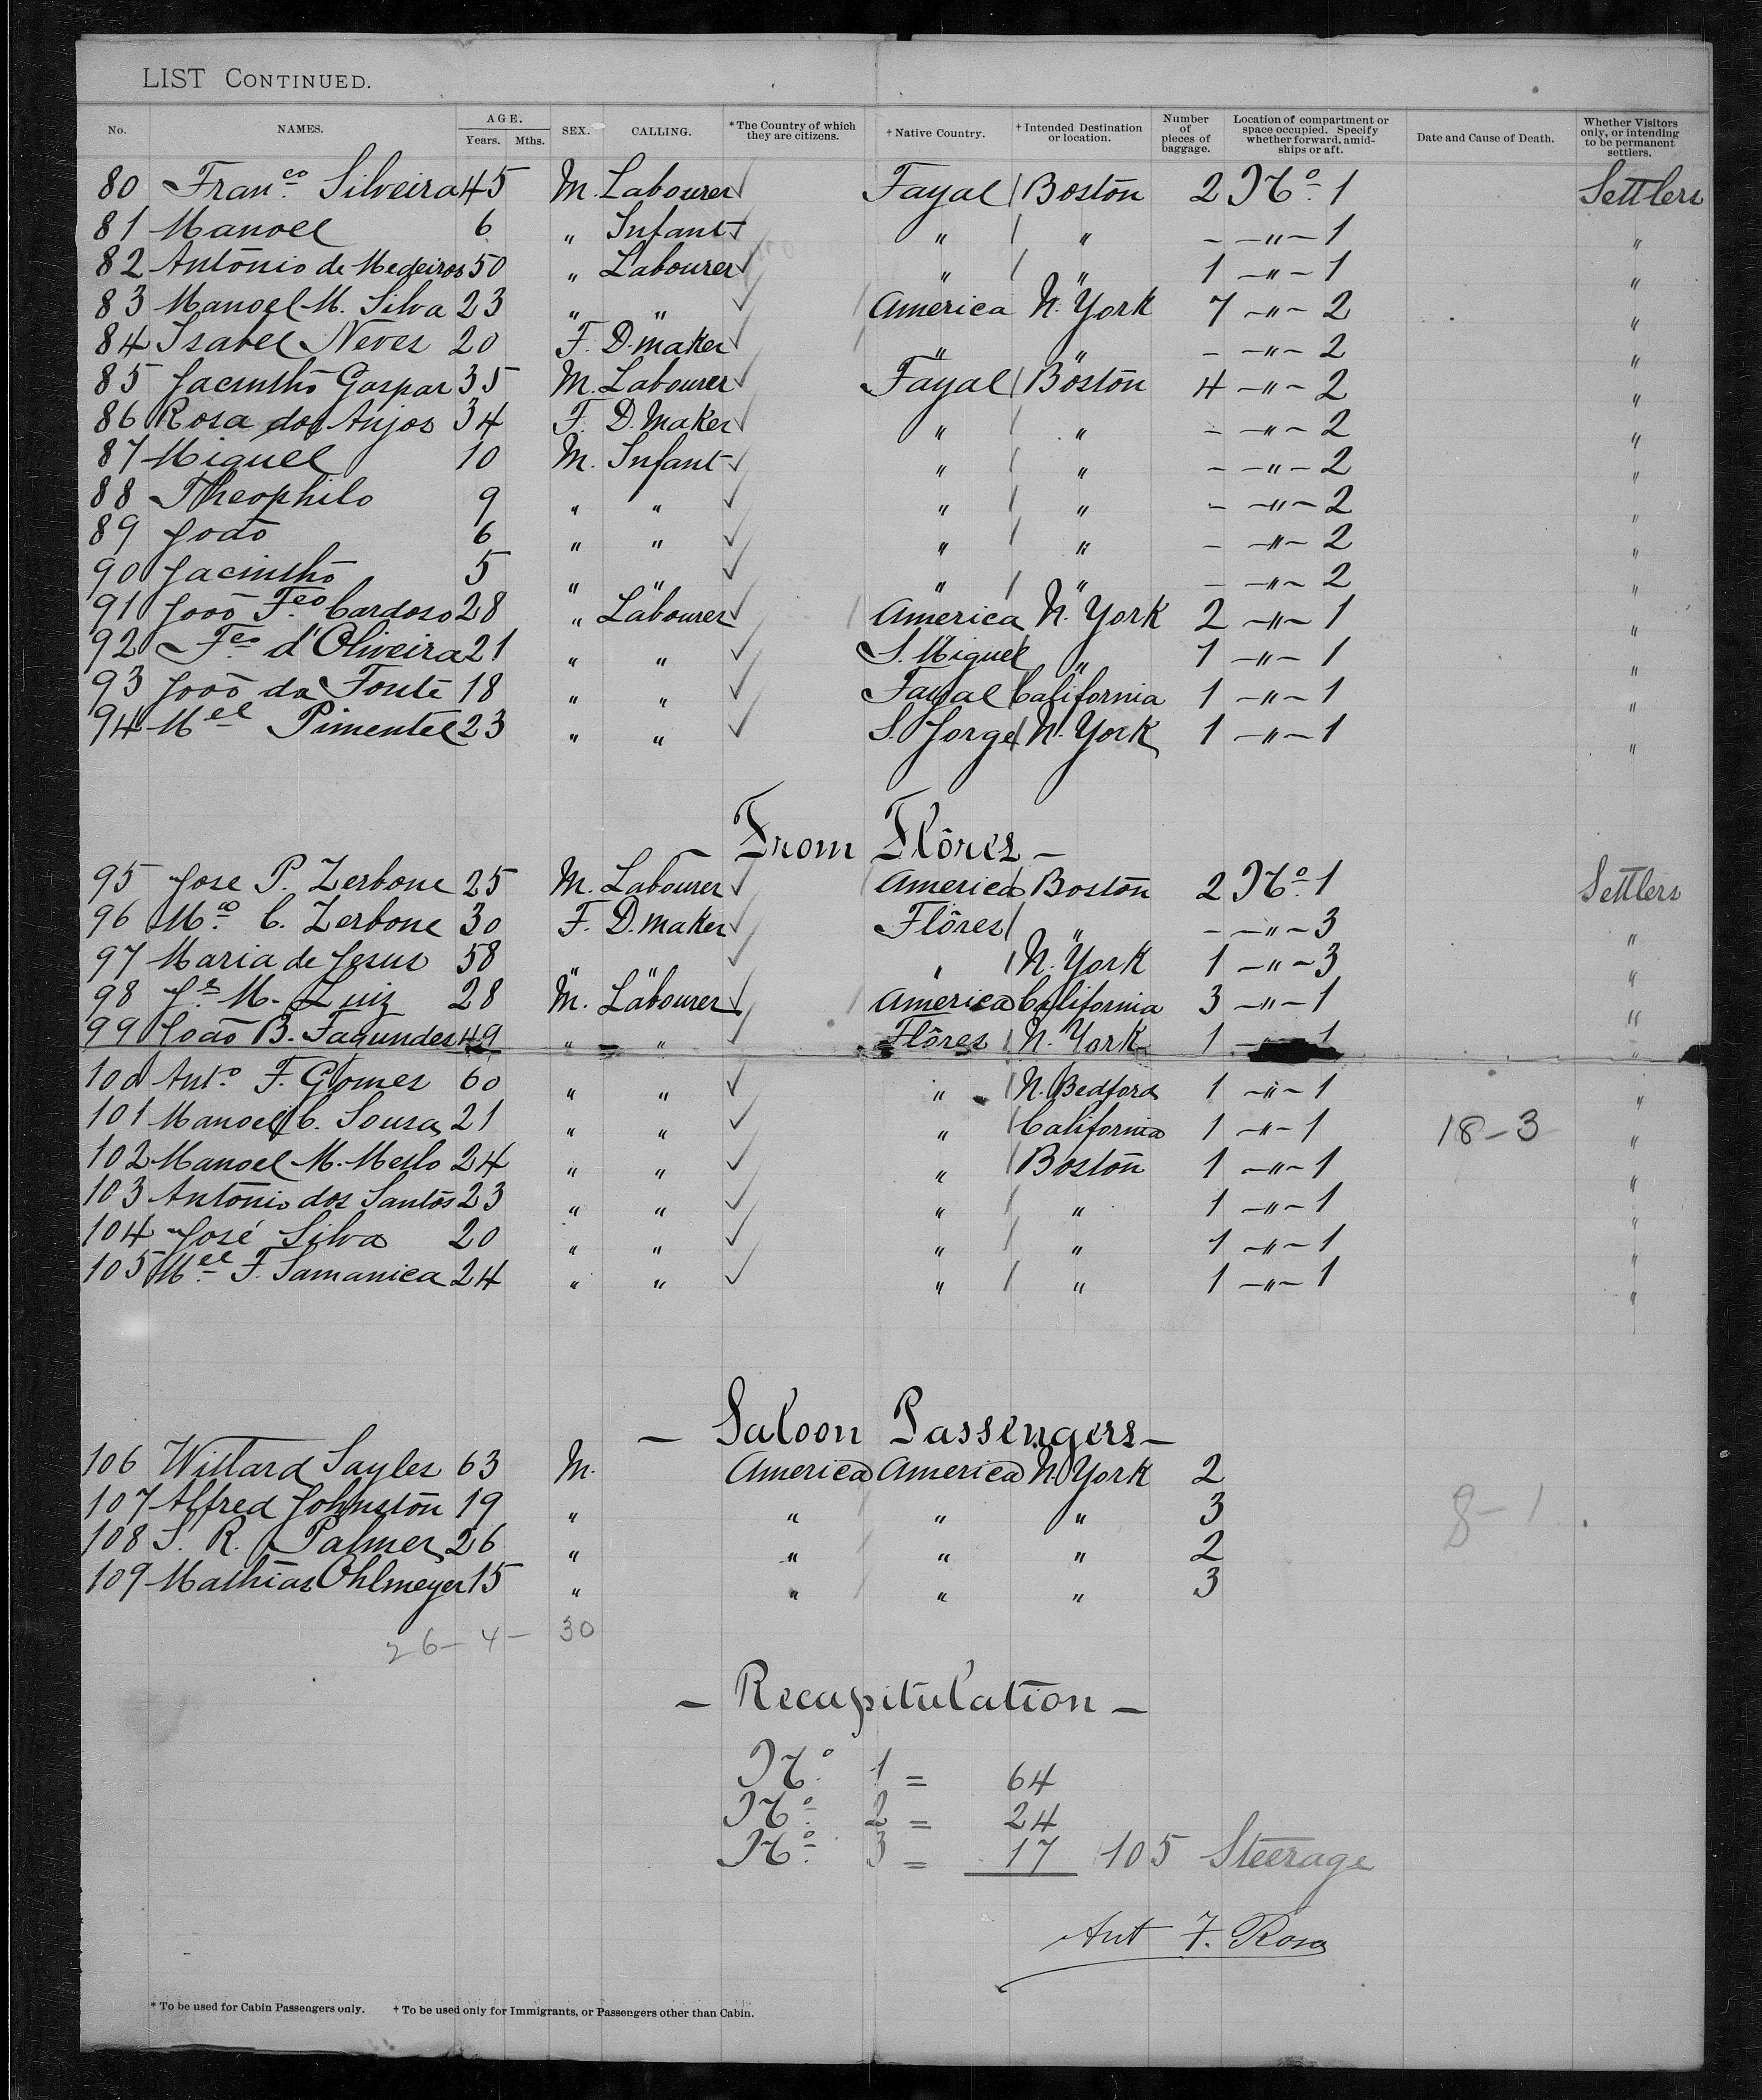 LIST CONTINUED.
No. NAMES. AGE. Years. Mths. SEX. CALLING. *The Country of which they are citizens. † Native Country. † Intended Destination or location. Number of pieces of baggage. Location of compartment or space occupied. Specify whether forward, amidships or aft. Date and Cause of Death. Whether Visitors only, or intending to be permanent settlers.
80 Franco. Silveira 45 M. Labourer Fayal Boston 2 No. 1 Settlers
81 Manoel 6 " Infant " " – –"– 1 "
82 Antonio de Medeiros 50 " Labourer " " 1 –"– 1 "
83 Manoel M. Silva 23 " " America N. York 7 –"– 2 "
84 Isabel Neves 20 F. D. maker " " – –"– 2 "
85 Jacintho Gaspar 35 M. Labourer Fayal Boston 4 –"– 2 "
86 Rosa dos Anjos 34 F. D. Maker " " – –"– 2 "
87 Miguel 10 M. Infant " " – –"– 2 "
88 Theophilo 9 " " " " – –"– 2 "
89 João 6 " " " " – –"– 2 "
90 Jacintho 5 " " " " – –"– 2 "
91 João Fco. Cardoso 28 " Labourer America N. York 2 –"– 1 "
92 Fco. d'Oliveira 21 " " S. Miguel " 1 –"– 1 "
93 João da Fonte 18 " " Fayal California 1 –"– 1 "
94 Mel Pimentel 23 " " S. Jorge N. York 1 –"– 1 "
– From Flôres –
95 Jose P. Zerbone 25 M. Labourer America Boston 2 No. 1 Settlers
96 C. Zerbone 30 F. D. maker Flôres " – –"– 3 "
97 Maria de Jesus 58 " " " N. York 1 –"– 3 "
98 M. Luiz 28 M. Labourer America California 3 –"– 1 "
99 João B. Fagundes 49 " " Flôres N. York 1 – 1 "
100 Anto. F. Gomes 60 " " " N. Bedford 1 –"– 1 "
101 Manoel C. Sousa 21 " " " California 1 –"– 1 18–3 "
102 Manoel M. Mello 24 " " " Boston 1 –"– 1 "
103 Antonio dos Santos 23 " " " " 1 –"– 1 "
104 José Silva 20 " " " " 1 –"– 1 "
105 Mel. F. Samanica 24 " " " " 1 –"– 1 "
– Saloon Passengers –
106 Willard Sayles 63 M. America America N. York 2
107 Alfred Johnston 19 " " " " 3
108 S. R. Palmer 26 " " " " 2
8–1
109 Mathias Ohlmeyer 15 " " " " 3
26– 4 – 30
– Recapitulation –
No. 1 = 64
No. 2 = 24
No. 3 = 17 105 Steerage
Ant F. Rosa
* To be used for Cabin Passengers only. † To be used only for Immigrants, or Passengers other than Cabin.